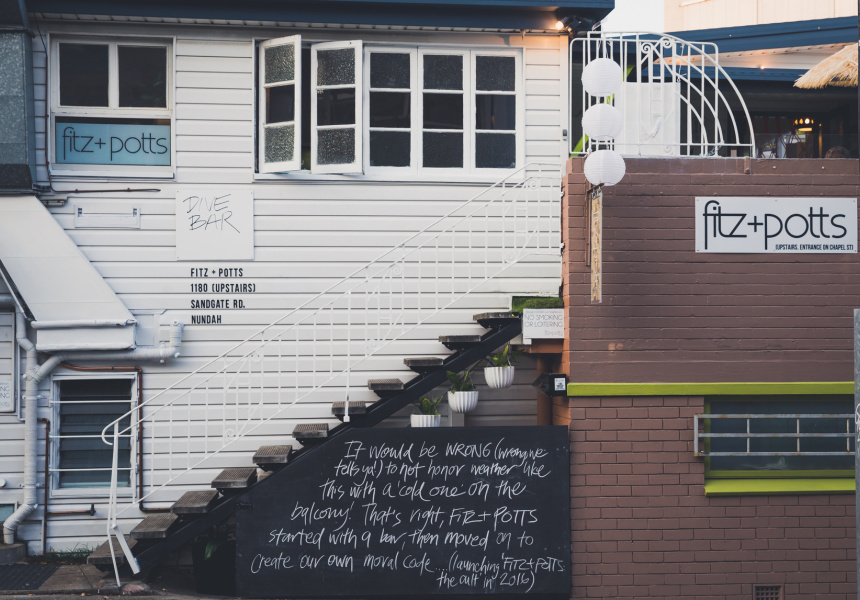 fitz+potts
DIVE
BAR
FITZ + POTTS
1180 (UPSTAIRS)
SANDGATE RD.
NUNDAH
fitz+potts
(UPSTAIRS. ENTRANCE ON CHAPEL ST)
NO SMOKING
OR LOITERING
It would be WRONG (wrong we
tells ya!) to not honor weather like
this with a cold one on the
balcony! That's right, FITZ + POTTS
started with a bar, then moved on to
create our own moral code.... (launching 'FITZ+POTTS
the cult' in 2016)